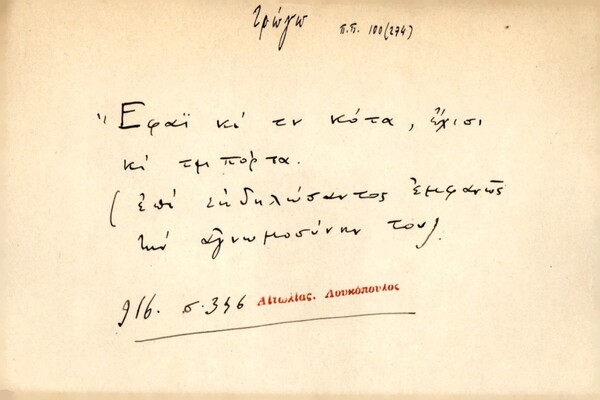 τρώγω π.π. 100 (274)
"Εφαϊ κι τν κότα, έχισι
κι τμ πόρτα.
(ἐπί ἐκδηλώσαντος ἐμφανῶς
τήν ἀγνωμοσύνην του).
916. σ. 346 Αιτωλίας. Λουκόπουλος